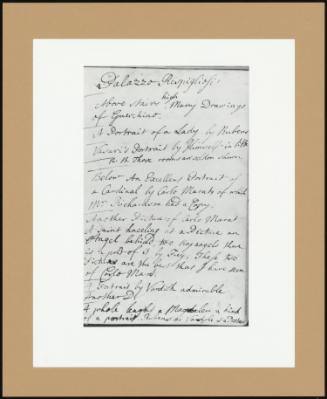 Palazzo Ruspigliosi
Above Stairs high Many Drawings
of Guerchino.
A Portrait of a Lady by Rubens
Vasari's Portrait by Himself in
N. B. These rooms are seldom shewn.
Below An Excellent Portrait of
a Cardinal by Carlo Maratt of which
Mr. Richardson had a Copy.
Another Picture of Carlo Marat
A Saint kneeling at a Picture an
Angel behind two boy angels there
is a print of it by Frey, These two
Pictures are the best that I have seen
of Carlo Marat
A Portrait by Vandyk admirable
another Do
A whole length a Magdalen a kind
of a portrait Rubens or Vandyke